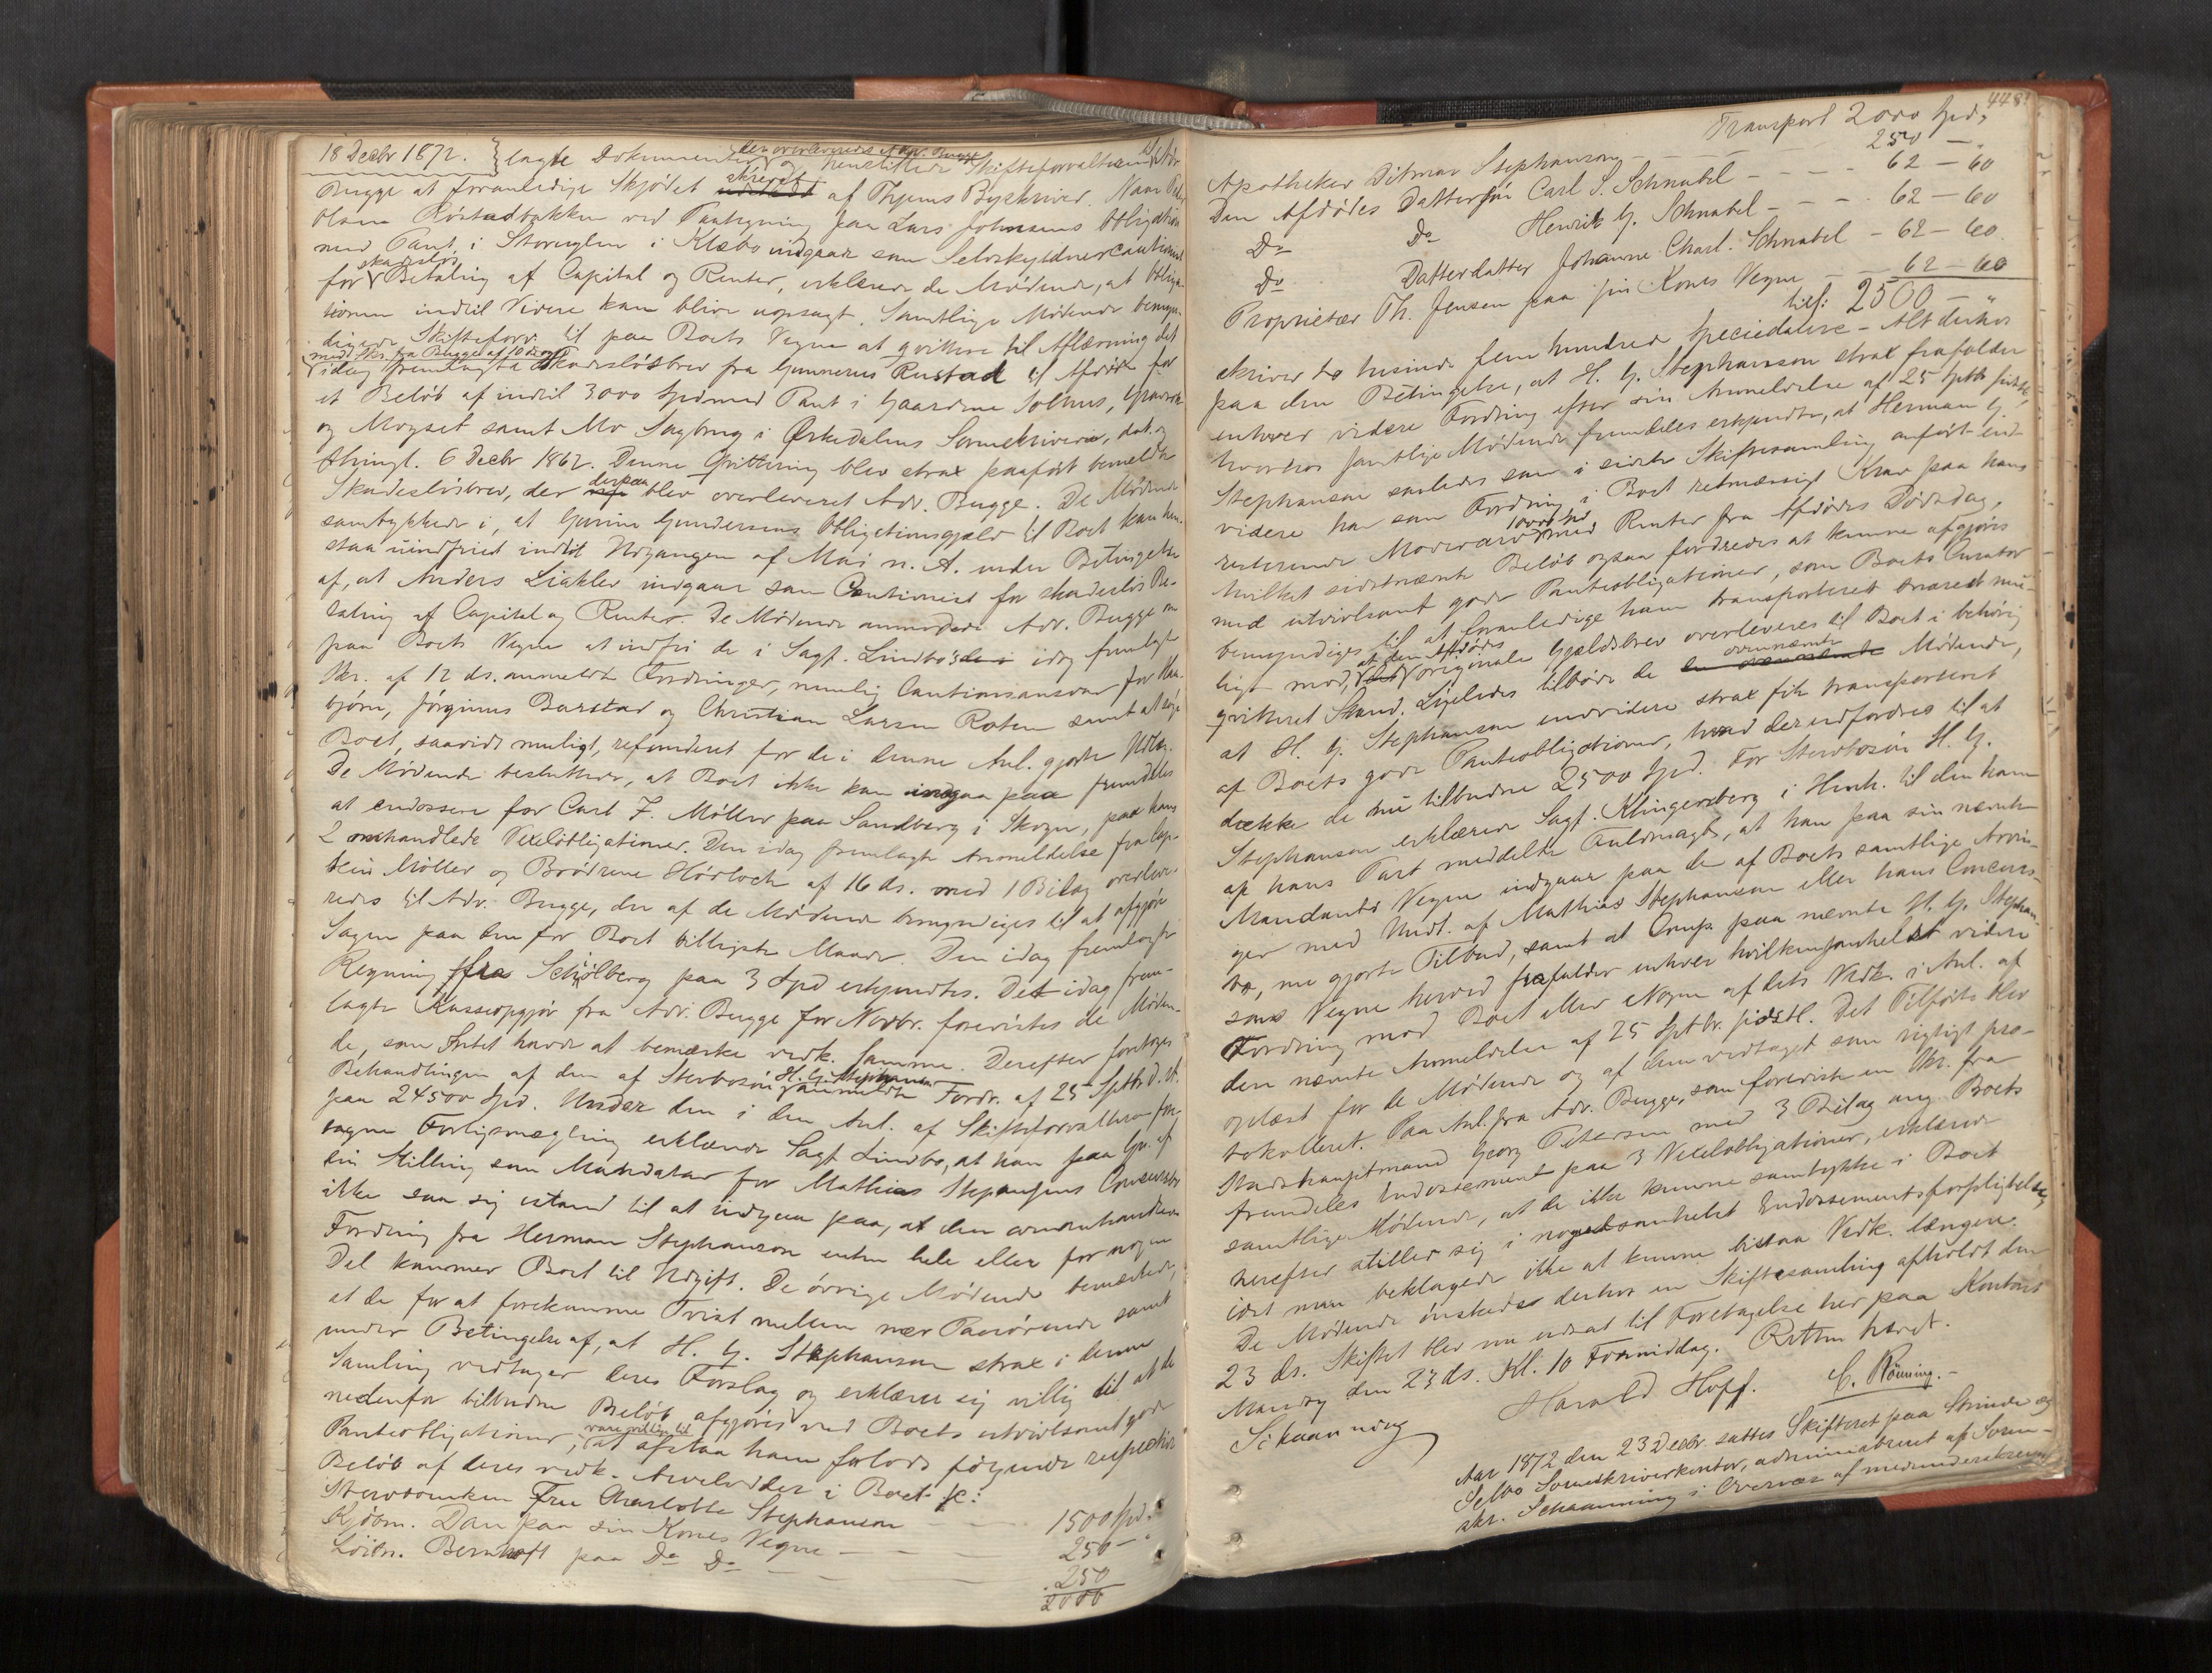 18 Decbr 1872. } lagte Dokumenter og henstillede Skifteforvalteren til Adv.
den overleveredes Adv. Bugge
Bugge at foranledige Skjødet skrevet af Thjems Byskriver. Naar
Olsen Röstadbakken ved Paategning paa Lars Johnsens Obligation
med Pant i Storuglen i Klæbo indgaar som Selvskyldnercautionist
for skadeslös Betaling af Capital og Renter, erklærede de Mödende, at Obliga-
tionen indtil Videre kan blive uopsagt. Samtlige Mödende bemyn-
digede Skifteforv. til paa Boets Vegne at qvittere til Aflæsning det
med Skr. fra Bugge af 10 ds.
idag fremlagte Skadeslösbrev fra Gunnerus Rustad til Afdöde for
et Belöb af indtil 3000 Spd med Pant i Gaardene Solhus,
og Moyset samt Mo Sagbrug i Ørkedalens Sorenskriveri, dat. og
thingl. 6 Decbr 1862. Denne Qvittering blev strax paafört bemeldte
Skadeslösbrev, der derpaa blev overleveret Adv. Bugge. De Mödende
samtykkede i, at Gurine Gundersens Obligationsgjæld til Boet kan hen-
staa uindfriet indtil Udgangen af Mai n. A. under Betingelse
af, at Anders Liaklev indgaar som Cautionist for skadeslös Be-
taling af Capital og Renter. De Mödende anmodede Adv. Bugge om
paa Boets Vegne at indfri de i Sagf. Lindbo's idag fremlagte
Skr. af 12 ds. anmeldte Fordringer, nemlig Cautionsansvar for
björn, Jörginus Barstad og Christian Larsen Roten samt at söge
Boet, saavidt muligt, refunderet for de i denne Anl. gjorte Udlæg.
De Mödende besluttede, at Boet ikke kan indgaa paa fremdeles
at endossere for Carl F. Möller paa Sandberg i Skogn, paa hans
2 omhandlede Vexelobligationer. Den idag fremlagte Anmeldelse fra Cap-
tein Möller og Brödrene Hörloch af 16 ds. med 1 Bilag overleve-
redes til Adv. Bugge, der af de Mödende bemyndiges til at afgjöre
Sagen paa den for Boet billigste Maade. Den idag fremlagte
Regning fra Schjölberg paa 3 Spd erkjendtes. Det idag frem-
lagte Kasseopgjör fra Adv. Bugge for Novbr. forevistes de Möden-
de, som Intet havde at bemærke vedk. samme. Derefter foretoges
Behandlingen af den af Stervbosön H. G. Stephanson anmeldte Fordr. af 25 Septbr d. A.
paa 24500 Spd. Under den i den Anl. af Skifteforvalteren fore-
tagne Forligsmægling erklærede Sagf. Lindbo, at han paa Gr. af
sin Stilling som Mandatar for Mathias Stephansens Concursbo
ikke saa sig istand til at indgaa paa, at den omhandlede
Fordring fra Herman Stephanson enten hele eller for nogen
Del kommer Boet til Udgift. De övrige Mödende bemærkede,
at de for at forekomme Tvist mellem nær Paarörende samt
under Betingelse af, at H. G. Stephanson strax i denne
Samling vedtager deres Forslag og erklærer sig villig til at de
nedenfor tilbudne Belöb afgjöres ved Boets utvivlsomt gode
Panteobligationer, vare villige til at afstaa ham forlods fölgende respective
Belöb af deres vedk. Arvelodder i Boet sc:
Stervboenken Fru Charlotte Stephanson — 1500 Spd. "
Kjöbm. Dan paa sin Kones Vegne — — — 250 — "
Löitn. Bernhoft paa Do Do — — — 250
2000
448
Transport 2000 Spd.
Apotheker Ditmar Stephanson — — — 250 — "
Den Afdödes Dattersön Carl S. Schnabel — — — 62 — 60
Do Do Henrik G. Schnabel — — — 62 — 60
Do Datterdatter Johanne Charl. Schnabel — 62 — 60
Proprietær Th. Jensen paa sin Kones Vegne — — 62 — 60
tils: 2500 — "
skriver to tusinde fem hundred Speciedalere — Alt derhos
paa den Betingelse, at H. G. Stephanson strax frafalder
enhver videre Fordring efter sin Anmeldelse af 25 Septbr sidstl.,
hvorhos samtlige Mödende fremdeles erkjendte, at Herman G.
Stephanson saaledes som i sidste Skiftesamling anfört end-
videre har som Fordring i Boet retmæssigt Krav paa hans
resterende Mödrearv 1000 Spd med Renter fra Afdödes Dödsdag,
hvilket sidstnævnte Belöb ogsaa fordredes at kunne afgjöres
med utvivlsomt gode Panteobligationer, som Boets Curator
bemyndiges til at foranledige ham transporteret snarest mu-
ligt mod, at den Afdödes originale Gjældsbrev overleveres til Boet i behörig
qvitteret Stand. Ligeledes tilböde de ovennævnte Mödende,
at H. G. Stephanson endvidere strax fik transporteret
af Boets gode Panteobligationer, hvad der udfordres til at
dække de nu tilbudne 2500 Spd. For Stervbosön H. G.
Stephanson erklærede Sagf. Klingenberg i Henh. til den ham
af hans Part meddelte Fuldmagt, at han paa sin nævnte
Mandants Vegne indgaar paa de af Boets samtlige Arvin-
ger med Undt. af Mathias Stephanson eller hans Concurs-
bo, nu gjorte Tilbud, samt at Comp. paa nævnte H. G. Stephan-
sons Vegne herved frafalder enhver hvilkensomhelst videre
Fordring mod Boet eller Nogen af dets Vedk. i Anl. af
den nævnte Anmeldelse af 25 Sptbr. sidstl. Det Tilförte blev
oplæst for de Mödende og af dem vedtaget som rigtigt pro-
tokolleret. Paa Anl. fra Adv. Bugge, som foreviste en Skr. fra
Stadshauptmand Georg Petersen med 3 Bilag ang. Boets
fremdeles Endossement paa 3 Vexelobligationer, erklærede
samtlige Mödende, at de ikke kunne samtykke i Boet
herefter stiller sig i nogensomhelst Endossementsforpligtelse,
idet man beklagede ikke at kunne bistaa Vedk. længere.
De Mödende önskede derhos en Skiftesamling afholdt den
23 ds. Skiftet blev nu udsat til Foretagelse her paa Kontoret
Mandag den 23 ds. Kl. 10 Formiddag. Retten hævet.
Schaanning Harald Hoff. C. Rönning.
Aar 1872 den 23 Decbr. sattes Skifteret paa Strinde og
Selbo Sorenskriverkontor, administreret af Soren-
skr. Schaanning i Overvær af medunderskrevne